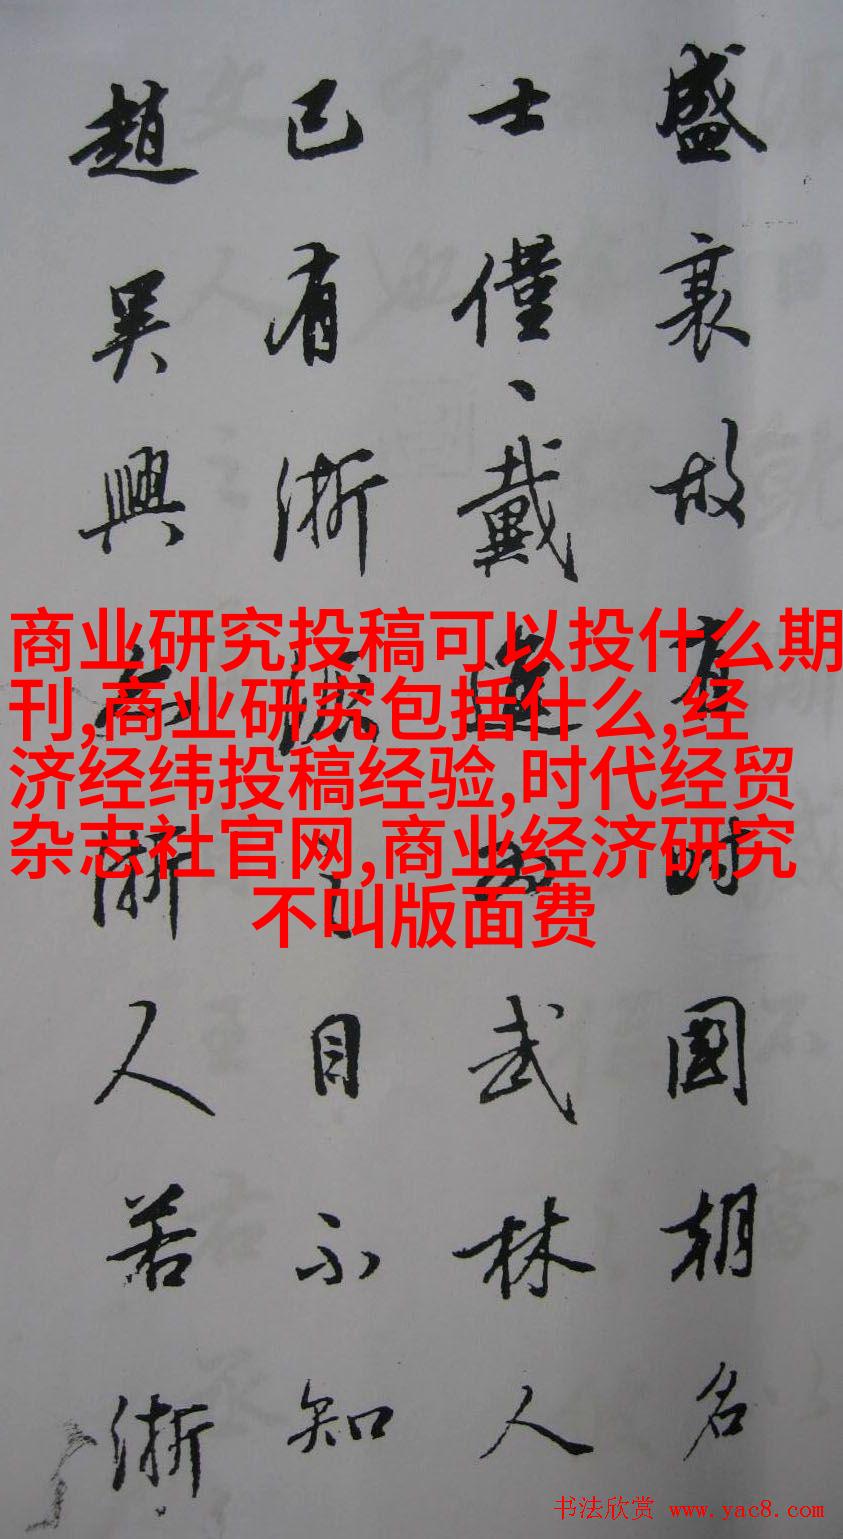 盛衰故有時國朝名
士僅、戴進為武林人
已有浙派之目不知
趙吳興亦浙人若浙
商业研究投稿可以投什么期
刊,商业研究包括什么,经
济经纬投稿经验,时代经贸
杂志社官网,商业经济研究
不叫版面费
书法欣赏 www.yac8.com